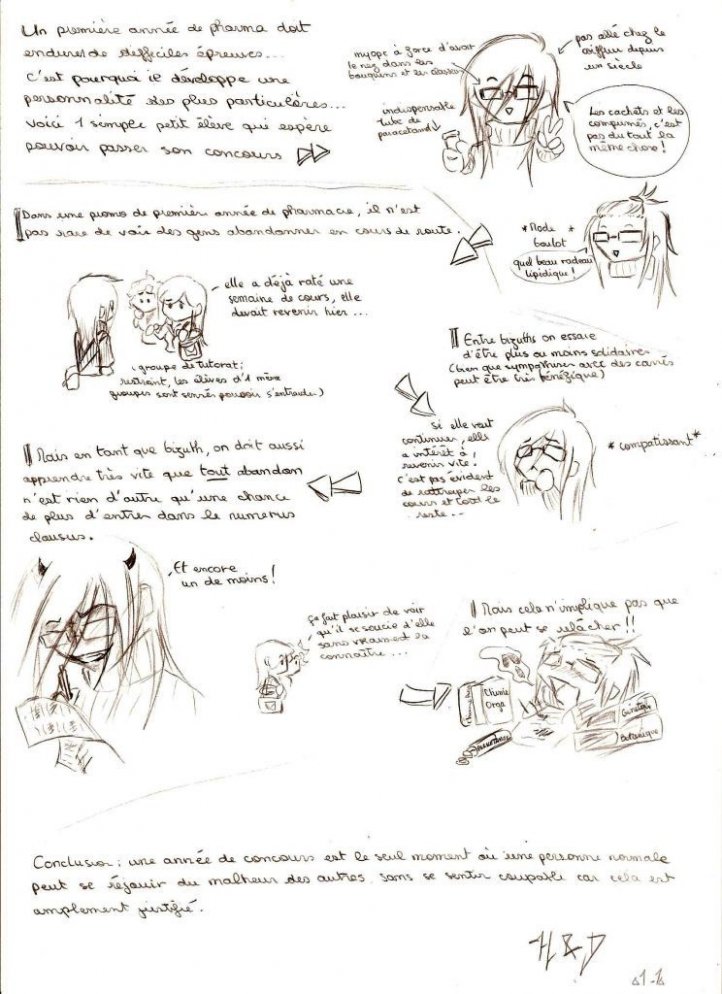 Un première année de pharma doit
endurer de difficiles épreuves...
C'est pourquoi il développe une
personnalité des plus particulières...
voici 1 simple petit élève qui espère
pouvoir passer son concours
myope à force d'avoir
le nez dans les
bouquins et les
pas allé chez le
coiffeur depuis
un siècle
indispensable
tube de
paracétamol
Les cachets et les
comprimés, c'est
pas du tout la
même chose !
Dans une promo de première année de pharmacie, il n'est
pas rare de voir des gens abandonner en cours de route.
* Mode *
boulot
quel beau radeau
lipidique !
elle a déjà raté une
semaine de cours, elle
devait revenir hier ...
(groupe de tutorat:
restreint, les élèves d'1 même
groupe sont sensés pouvoir s'entraider)
Entre bizuths on essaie
d'être plus ou moins solidaires
(bien que sympathiser avec des carrés
peut être très bénéfique)
si elle veut
continuer, elle
a intérêt à
revenir vite.
c'est pas évident
de rattraper les
cours et tout le
reste...
* compatissant *
Mais en tant que bizuth, on doit aussi
apprendre très vite que tout abandon
n'est rien d'autre qu'une chance
de plus d'entrer dans le numerus
clausus.
Et encore
un de moins !
ça fait plaisir de voir
qu'il se soucie d'elle
sans vraiment la
connaître ...
Mais cela n'implique pas que
l'on peut se relâcher !!
Chimie
Orga
Botanique
Conclusion : une année de concours est le seul moment où une personne normale
peut se réjouir du malheur des autres sans se sentir coupable car cela est
amplement justifié.
H & D